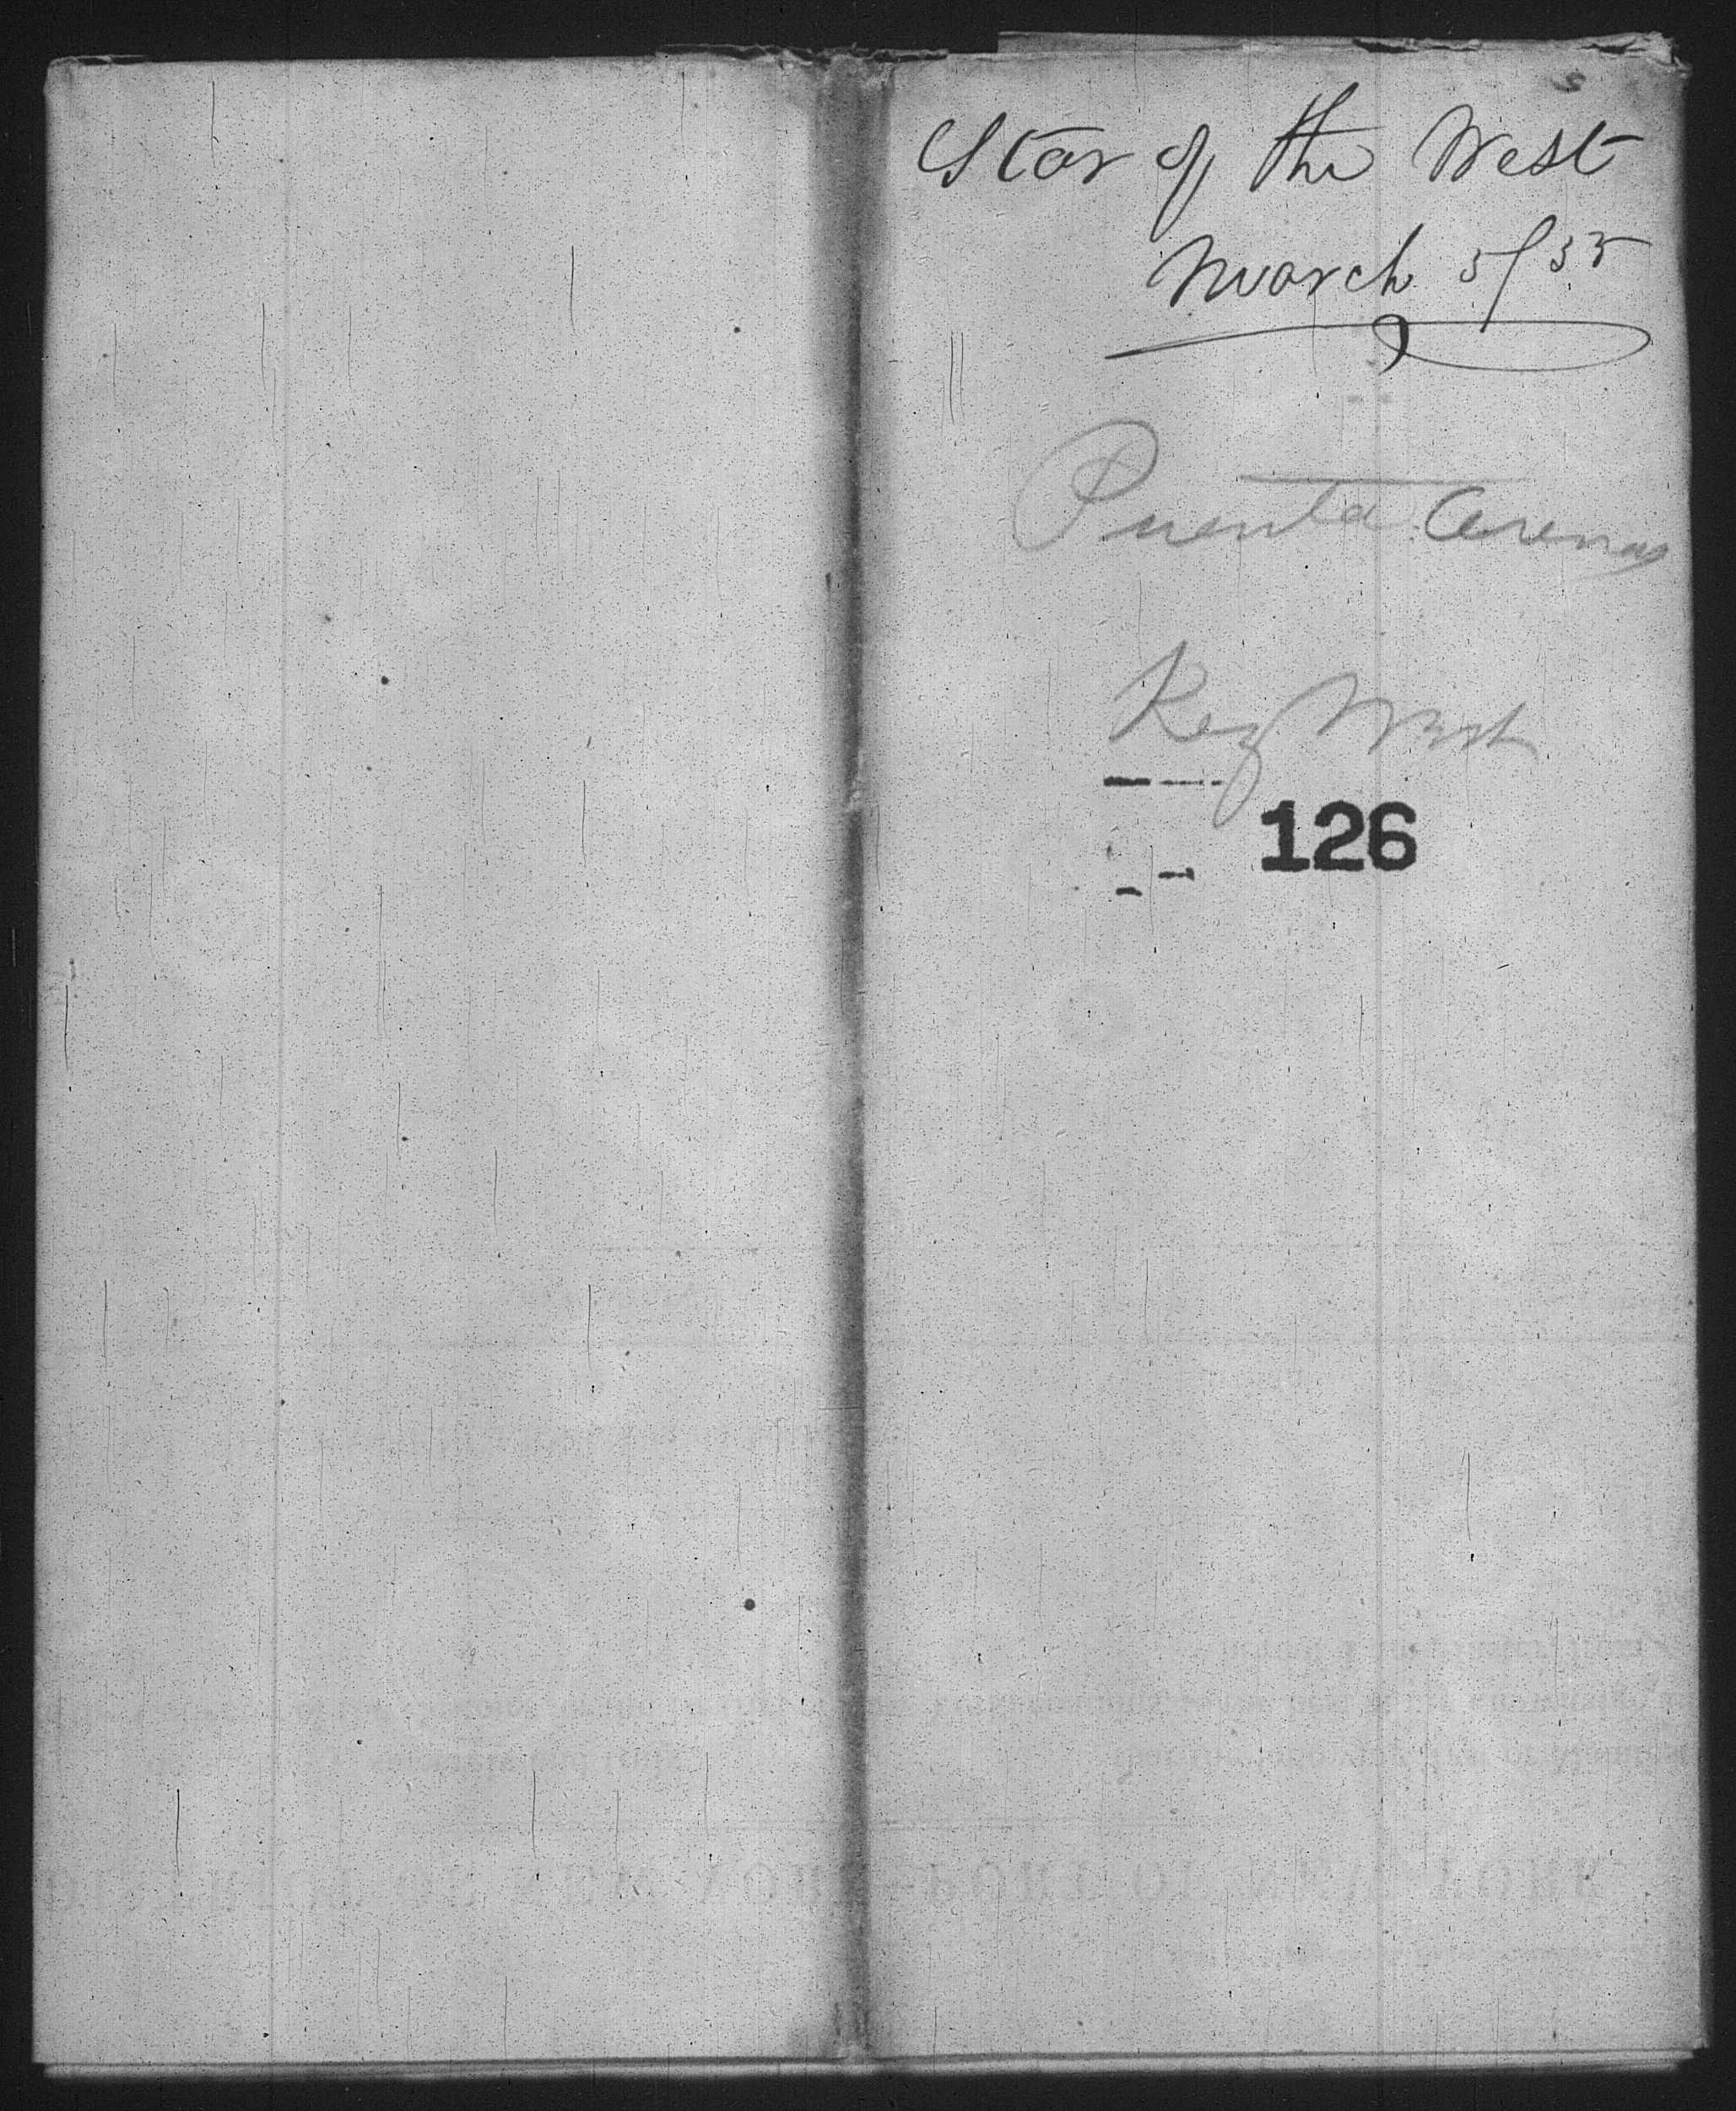 Star of the West
March 5/55
Puenta Arenas
Key West
126